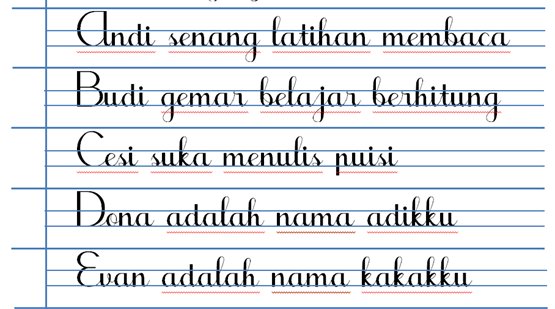 Andi senang latihan membaca
Budi gemar belajar berhitung
Cesi suka menulis puisi
Dona adalah nama adikku
Evan adalah nama kakakku